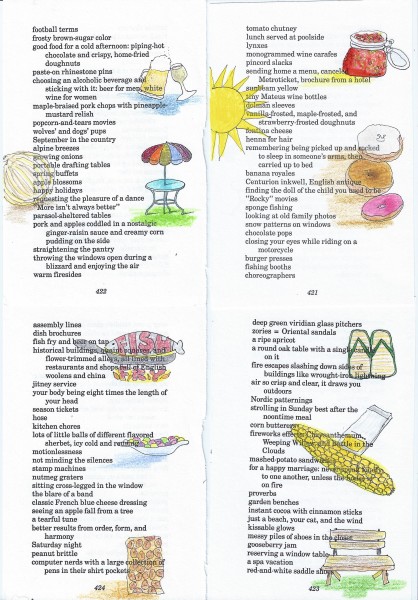 football terms
frosty brown-sugar color
good food for a cold afternoon: piping-hot
chocolate and crispy, home-fried
doughnuts
paste-on rhinestone pins
choosing an alcoholic beverage and
sticking with it: beer for men, white
wine for women
maple-braised pork chops with pineapple
mustard relish
popcorn-and-tears movies
wolves' and dogs' pups
September in the country
alpine breezes
growing onions
portable drafting tables
spring buffets
apple blossoms
happy holidays
requesting the pleasure of a dance
"More isn't always better"
parasol-sheltered tables
pork and apples coddled in a nostalgic
ginger-raisin sauce and creamy corn
pudding on the side
straightening the pantry
throwing the windows open during a
blizzard and enjoying the air
warm firesides
422
tomato chutney
lunch served at poolside
lynxes
monogrammed wine carafes
pincord slacks
sending home a menu, canceled
Metroticket, brochure from a hotel
sunbeam yellow
tiny Mateus wine bottles
dolman sleeves
vanilla-frosted, maple-frosted, and
strawberry-frosted doughnuts
fontina cheese
henna for hair
remembering being picked up and rocked
to sleep in someone's arms, then
carried up to bed
banana royales
Centurion inkwell, English antique
finding the doll of the child you used to be
"Rocky" movies
sponge fishing
looking at old family photos
snow patterns on windows
chocolate pops
closing your eyes while riding on a
motorcycle
burger presses
fishing booths
choreographers
421
assembly lines
dish brochures
fish fry and beer on tap
historical buildings, quaint houses, and
flower-trimmed alleys, all lined with
restaurants and shops full of English
woolens and china
jitney service
your body being eight times the length of
your head
season tickets
hose
kitchen chores
lots of little balls of different flavored
sherbet, icy cold and
motionlessness
not minding the silences
stamp machines
nutmeg graters
sitting cross-legged in the window
the blare of a band
classic French blue cheese dressing
seeing an apple fall from a tree
a tearful tune
better results from order, form, and
harmony
Saturday night
peanut brittle
computer nerds with a large collection of
pens in their shirt pockets
424
FISH
deep green viridian glass pitchers
zories = Oriental sandals
a ripe apricot
a round oak table with a single candle
on it
fire escapes slashing down sides of
buildings like wrought-iron lightning
air so crisp and clear, it draws you
outdoors
Nordic patternings
strolling in Sunday best after the
noontime meal
corn butterers
fireworks effects: Chrysanthemum,
Weeping Willow, and Battle in the
Clouds
mashed-potato sandwich
for a happy marriage: never speak loudly
to one another, unless the house is
on fire
proverbs
garden benches
instant cocoa with cinnamon sticks
just a beach, your cat, and the wind
kissable glows
messy piles of shoes in the closet
gooseberry jam
reserving a window table
a spa vacation
red-and-white saddle shoes
423